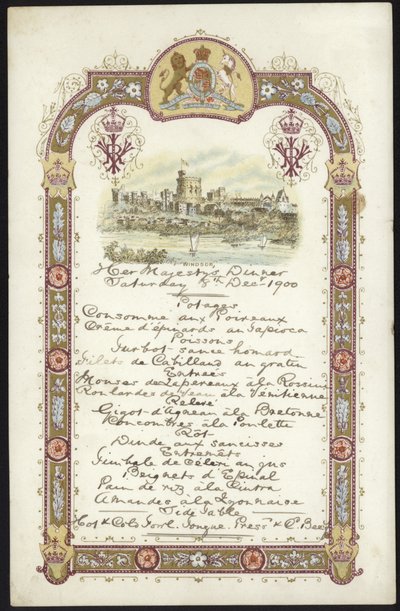 WINDSOR
Her Majestys Dinner
Saturday 8th Decr 1900
Potages
Consomme aux Poireaux
Crême d'épinards au Tapioca
Poissons
Turbot sauce homard
Filets de Cabillaud au gratin
Entrées
Mousses de Lapereaux à la Rossini
Roulardes de Veau à la Vénitienne
Relevé
Gigot d'agneau à la Bretonne
à la Poulette
Rôt
Dinde aux saucisses
Entremêts
Timbale de Céleri au jus
Beignets d'Epinal
Pain de riz à la Cintra
Amandes à la Lyonnaise
Side Table
Hot & Cold Fowl. Tongue. Press'd Beef